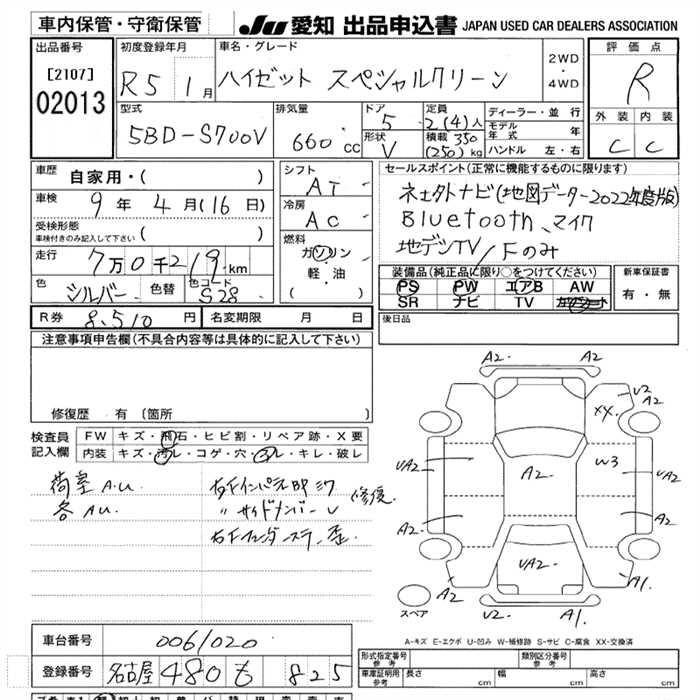 車内保管・守衛保管
JU 愛知 出品申込書 JAPAN USED CAR DEALERS ASSOCIATION
出品番号 [2107] 02013
初度登録年月 R5 1月
車名・グレード ハイゼット スペシャルクリーン
2WD・4WD
評価点 R
外装 C 内装 C
型式 5BD-S700V
排気量 660 CC
ドア 5
形状 V
定員 2(4)人
積載 350 (250) kg
ディーラー・並行
モデル年式 年
ハンドル 左・右
車歴 自家用・( )
車検 9年 4月(16日)
受検形態
車検付きのみ記入して下さい ( )
走行 7万0千219km
色 シルバー 色替 色コード S28
シフト AT
冷房 AC
燃料 ガソリン
軽・油
( )
セールスポイント(正常に機能するものに限ります)
ネオタトナビ(地図データー2022年度版)
Bluetooth、マイク
地デジTV/Fのみ
装備品(純正品に限り○をつけてください)
PS PW エアB AW
SR ナビ TV
新車保証書
有・無
R券 8,510円 名変期限 月 日
後日品
注意事項申告欄(不具合内容等は具体的に記入して下さい)
修復歴 有 (箇所 )
検査員記入欄
FW キズ・飛石・ヒビ割・リペア跡・X要
内装 キズ・汚レ・コゲ・穴・スレ・キレ・破レ
荷室 A.U.
各 AU.
右Fインパネ
〃 サイドメンバー
右Fフェンダー
修復
A2 A2
U2 A2
XX A2
UA2 A2 W3 UA2
A2 A2
UA2
A2 A1
U2 A1
スペア
A-キズ E-エクボ U-凹み W-補修跡 S-サビ C-腐食 XX-交換済
車台番号 0061020
登録番号 名古屋 480 も 825
形式指定番号 参考
類別区分番号 参考
車庫証明用 参考
長さ cm 幅 cm 高さ cm